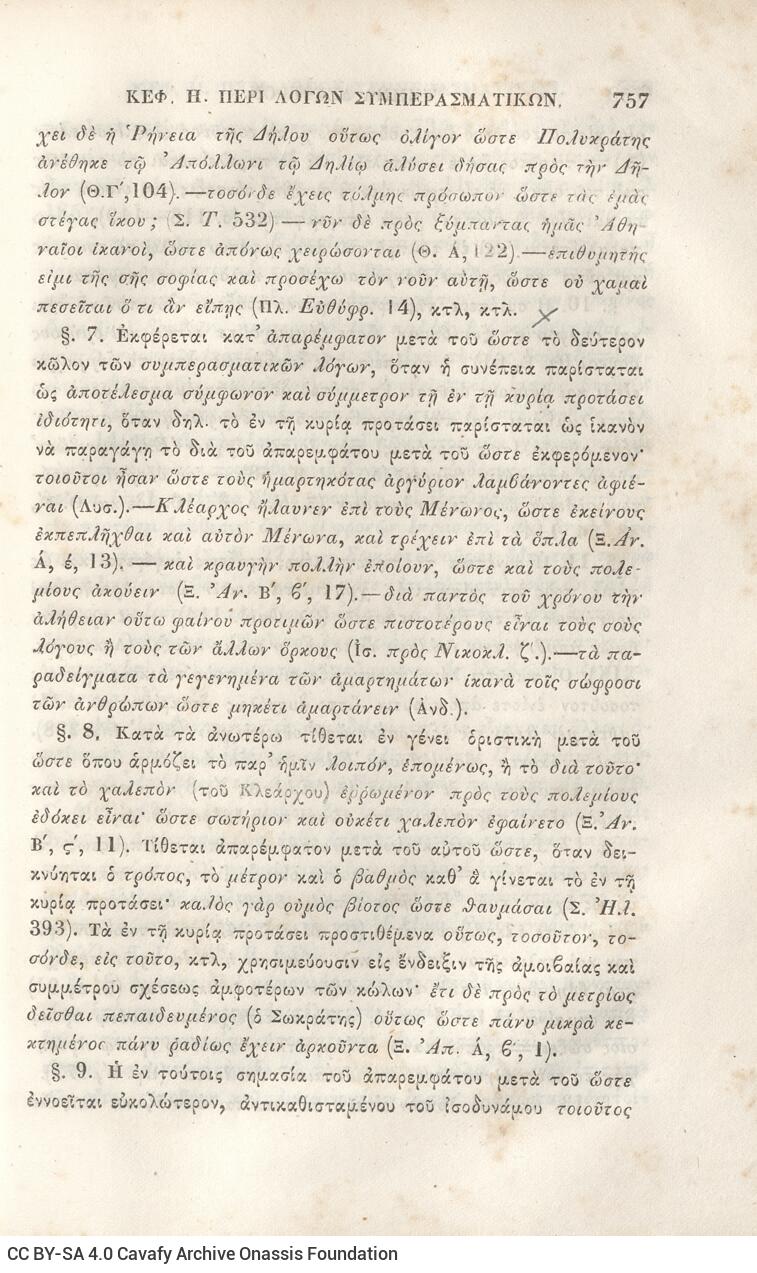 ΚΕΦ. Η. ΠΕΡΙ ΛΟΓΩΝ ΣΥΜΠΕΡΑΣΜΑΤΙΚΩΝ. 757
χει δὲ ἡ Ῥήνεια τῆς Δήλου οὕτως ὀλίγον ὥστε Πολυκράτης
ἀνέθηκε τῷ Ἀπόλλωνι τῷ Δηλίῳ ἁλύσει δήσας πρὸς τὴν Δῆ-
λον (Θ.Γ΄,104).—τοσόνδε ἔχεις τόλμης πρόσωπον ὥστε τὰς ἐμὰς
στέγας ἵκου; (Σ. Τ. 532) — νῦν δὲ πρὸς ξύμπαντας ἡμᾶς Ἀθη-
ναῖοι ἱκανοί, ὥστε ἀπόνως χειρώσονται (Θ. Ά, 122).—ἐπιθυμητής
εἰμι τῆς σῆς σοφίας καὶ προσέχω τὸν νοῦν αὐτῇ, ὥστε οὐ χαμαὶ
πεσεῖται ὅ τι ἂν εἴπῃς (Πλ. Εὐθύφρ. 14), κτλ, κτλ.
§. 7. Ἐκφέρεται κατ᾽ ἀπαρέμφατον μετὰ τοῦ ὥστε τὸ δεύτερον
κῶλον τῶν συμπερασματικῶν λόγων, ὅταν ἡ συνέπεια παρίσταται
ὡς ἀποτέλεσμα σύμφωνον καὶ σύμμετρον τῇ ἐν τῇ κυρίᾳ προτάσει
ἰδιότητι, ὅταν δηλ. τὸ ἐν τῇ κυρίᾳ προτάσει παρίσταται ὡς ἱκανὸν
νὰ παραγάγῃ τὸ διὰ τοῦ ἀπαρεμφάτου μετὰ τοῦ ὥστε ἐκφερόμενον·
τοιοῦτοι ἦσαν ὥστε τοὺς ἡμαρτηκότας ἀργύριον λαμβάνοντες ἀφιέ-
ναι (Λυσ.).—Κλέαρχος ἤλαυνεν ἐπὶ τοὺς Μένωνος, ὥστε ἐκείνους
ἐκπεπλῆχθαι καὶ αὐτὸν Μένωνα, καὶ τρέχειν ἐπὶ τὰ ὅπλα (Ξ.Ἀν.
Ά, έ, 13). — καὶ κραυγὴν πολλὴν ἐποίουν, ὥστε καὶ τοὺς πολε-
μίους ἀκούειν (Ξ. Ἀν. Β΄, ϐ΄, 17).—διὰ παντὸς τοῦ χρόνου τὴν
ἀλήθειαν οὕτω φαίνου προτιμῶν ὥστε πιστοτέρους εἶναι τοὺς σοὺς
λόγους ἢ τοὺς τῶν ἄλλων ὅρκους (Ἰσ. πρὸς Νικοκλ. ζ΄.).—τὰ πα-
ραδείγματα τὰ γεγενημένα τῶν ἁμαρτημάτων ἱκανὰ τοῖς σώφροσι
τῶν ἀνθρώπων ὥστε μηκέτι ἁμαρτάνειν (Ἀνδ.).
§. 8. Κατὰ τὰ ἀνωτέρω τίθεται ἐν γένει ὁριστικὴ μετὰ τοῦ
ὥστε ὅπου ἁρμόζει τὸ παρ᾽ ἡμῖν λοιπόν, ἑπομένως, ἢ τὸ διὰ τοῦτο·
καὶ τὸ χαλεπὸν (τοῦ Κλεάρχου) ἐῤῥωμένον πρὸς τοὺς πολεμίους
ἐδόκει εἶναι· ὥστε σωτήριον καὶ οὐκέτι χαλεπὸν ἐφαίνετο (Ξ.Ἀν.
Β΄, ς΄, 11). Τίθεται ἀπαρέμφατον μετὰ τοῦ αὐτοῦ ὥστε, ὅταν δει-
κνύηται ὁ τρόπος, τὸ μέτρον καὶ ὁ βαθμὸς καθ᾽ ἃ γίνεται τὸ ἐν τῇ
κυρίᾳ προτάσει· καλὸς γὰρ οὑμὸς βίοτος ὥστε θαυμάσαι (Σ. Ἠλ.
393). Τὰ ἐν τῇ κυρίᾳ προτάσει προστιθέμενα οὕτως, τοσοῦτον, το-
σόνδε, εἰς τοῦτο, κτλ, χρησιμεύουσιν εἰς ἔνδειξιν τῆς ἀμοιβαίας καὶ
συμμέτρου σχέσεως ἀμφοτέρων τῶν κώλων· ἔτι δὲ πρὸς τὸ μετρίως
δεῖσθαι πεπαιδευμένος (ὁ Σωκράτης) οὕτως ὥστε πάνυ μικρὰ κε-
κτημένος πάνυ ῥᾳδίως ἔχειν ἀρκοῦντα (Ξ. Ἀπ. Ά, ϐ΄, 1).
§. 9. Ἡ ἐν τούτοις σημασία τοῦ ἀπαρεμφάτου μετὰ τοῦ ὥστε
ἐννοεῖται εὐκολώτερον, ἀντικαθισταμένου τοῦ ἰσοδυνάμου τοιοῦτος
CC BY-SA 4.0 Cavafy Archive Onassis Foundation